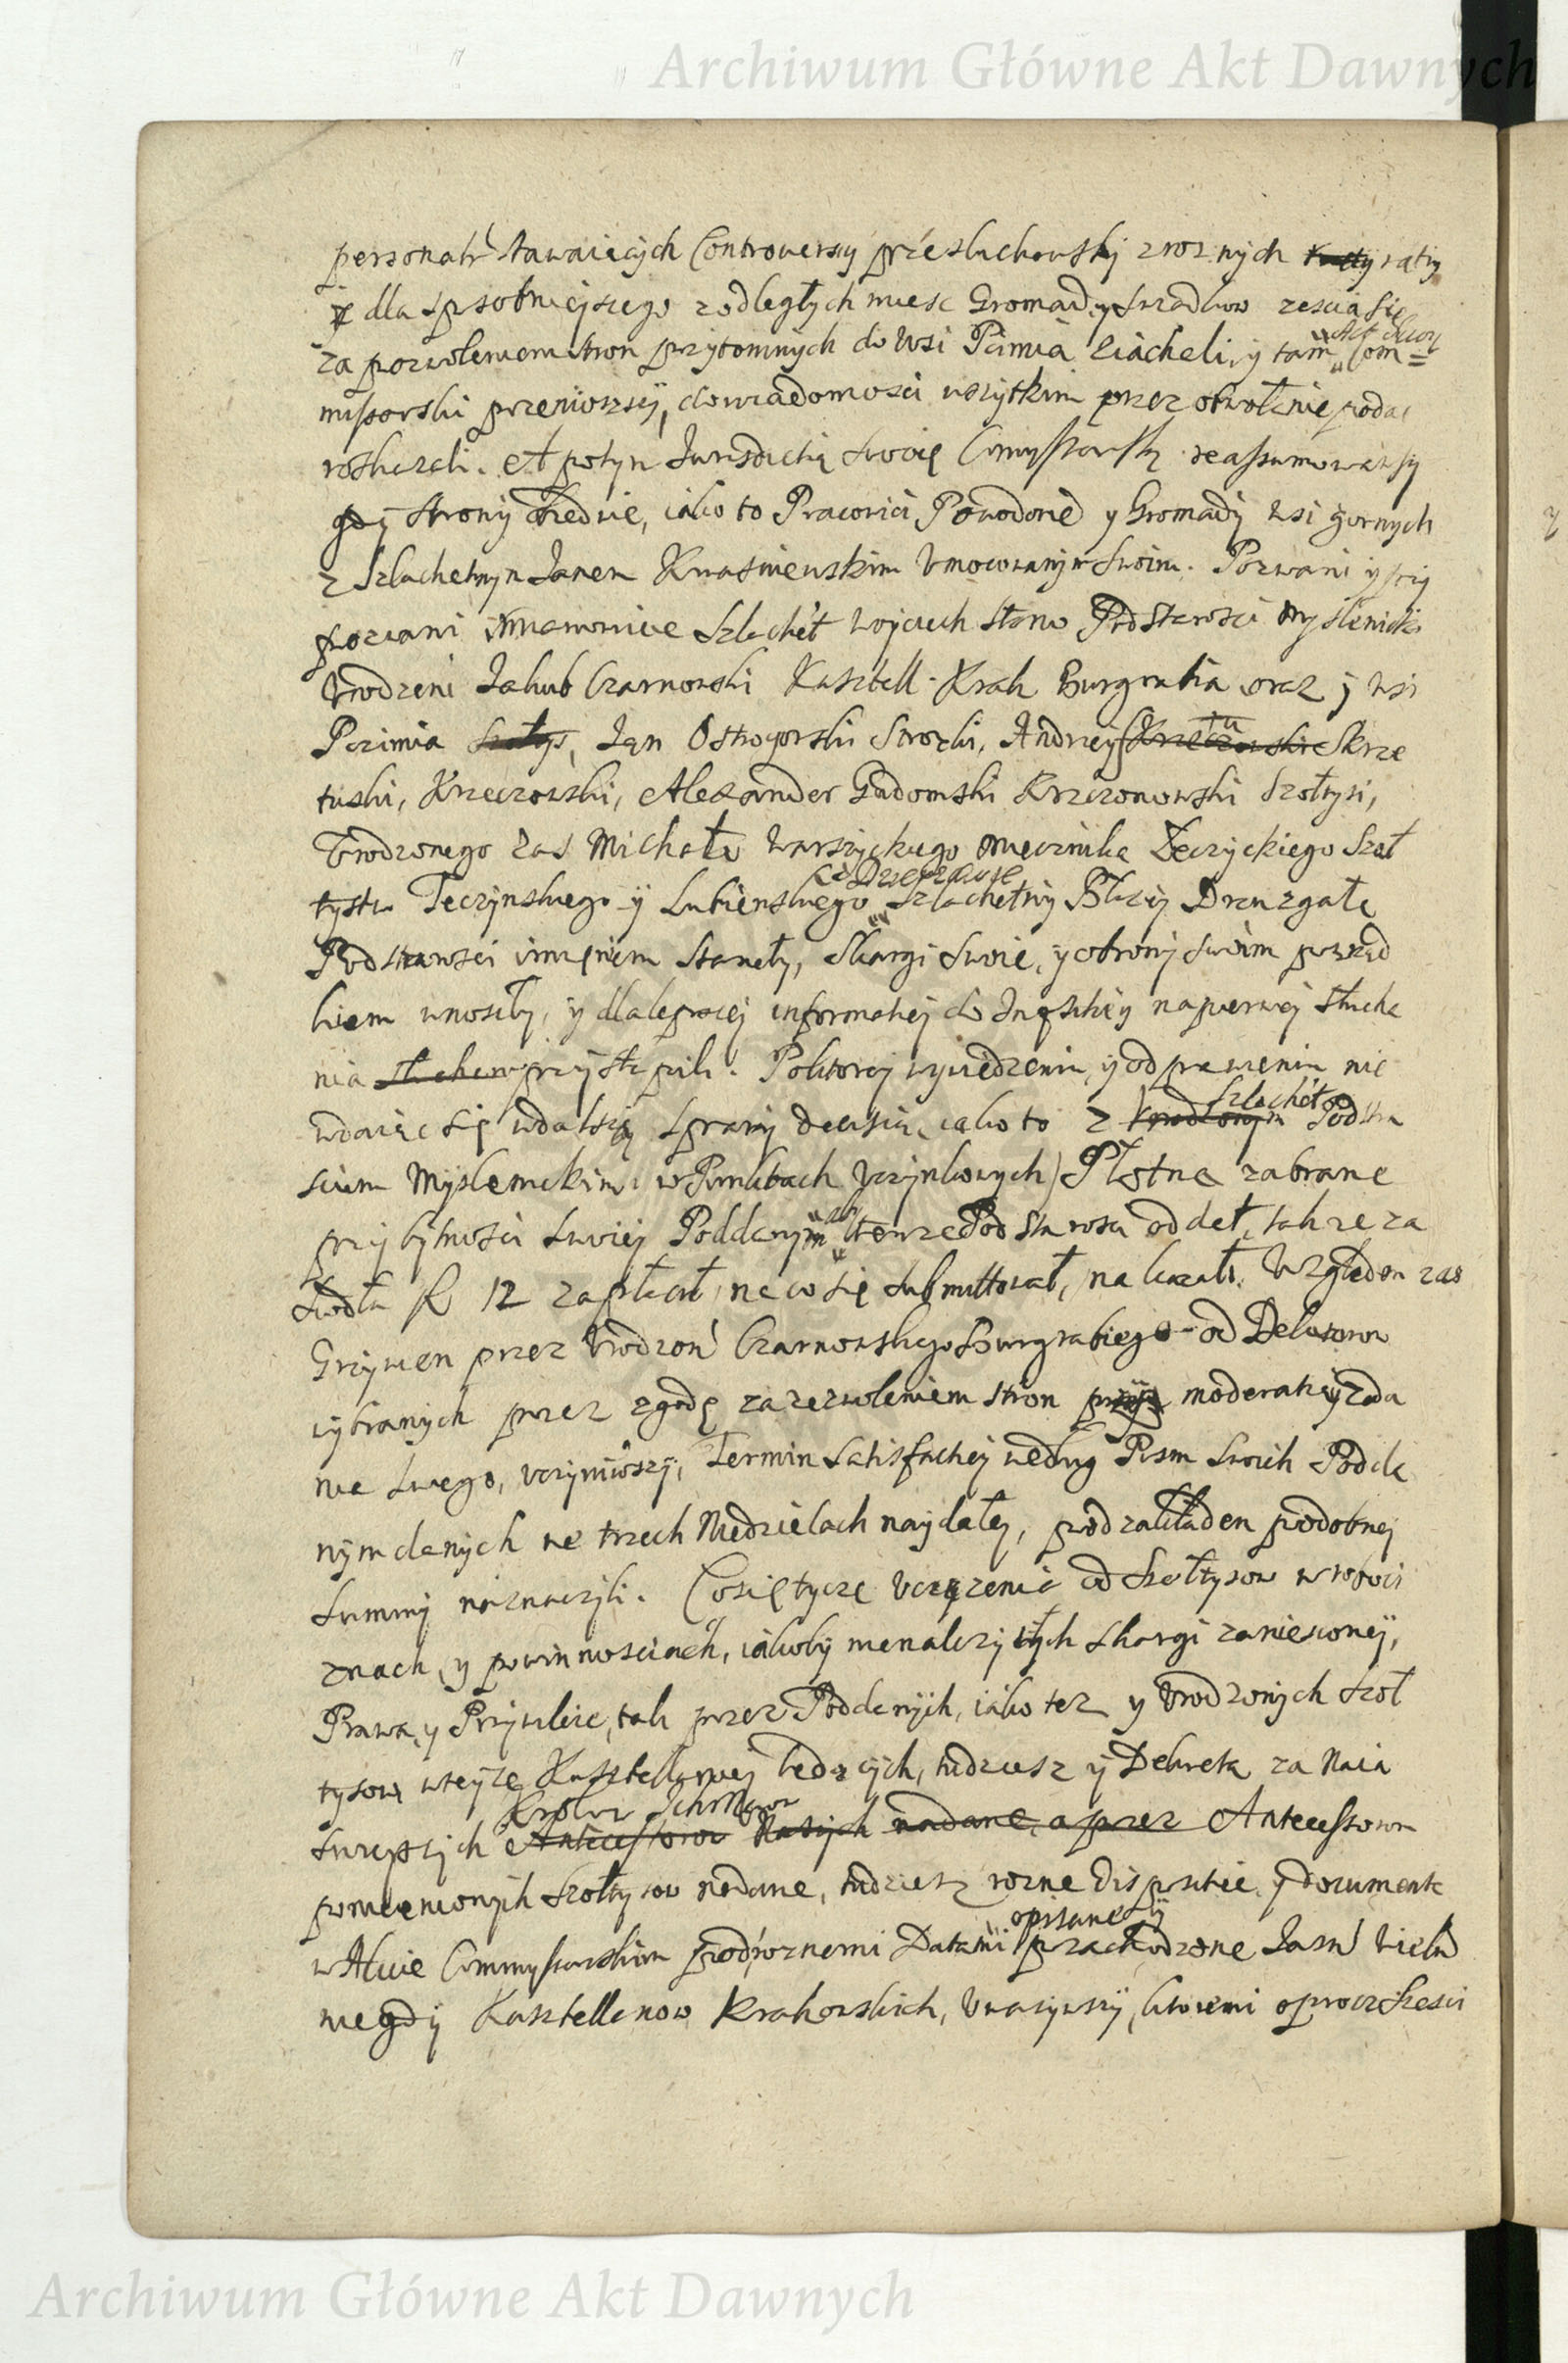 Archiwum Główne Akt Dawnych
personalr stawaiących Controwersy przesłuchawszy z roznych raty
y dla sposobnieyszego z odległych miesc Gromad y Sządkow zescia się
za pozwoleniem stron przytomnych do wsi Pcimia ziacheli, y tam Akt swoy Com=
missorski przeniozszy, do wiadomosci wszytkim przez obwołanie podac
roskazali. Et potym Jurisdictią swoię Comyssarską reassumowawszy
gdy Strony obiedwie, iako to Pracowici Powodowie y Gromady wsi gornych
z Szlachetnym Janem Kwasniewskim Umocowanym swoim. Pozwani y przy
pozwani mianowicie Szlachet Woyciech Podstarosci Myslenicki
Urodzeni Jakub Czarnowski Kasztell. Krak Burgrabia oraz y wsi
Pczimia Szołtys, Jan Ostrogorski Strozki, Andrzey Skrze
tuski, Krzeczowski, Alexander Gadomski Krzczonowski Szołtysi,
Urodzonego zas Michała Warszyckiego Miecznika Łęczyckiego Szoł
tystw Teczynskiego y Lubienskiego Dzierzawce Szlachetny Błazey Druzgała
Podstarosci imieniem stanęły, Skargi swoie, y obrony swoim porząd
kiem wnosiły, y dla lepszey informatiey do Inqsitiey napierwey słucha
nia słuchaw przystąpili. Po ktorey wywiedzeniu, y odprawieniu nie
wdaiąc się w dalszą sprawy decisią, iako to z Urodzonym Szlachet Podsta
rościm Myslenickim w Punktach Uczynkowych Płotna zabrane
przy bytności swoiey Poddanym aby tenze Podstarosci oddał, takze za
siodła fl 12 zapłacił, na co się submittował, nakazali. Względem zas
Grzywien przez Urodzon Czarnowskiego Burgrabiego od Delatorow
wybranych przez zgodę za zezwoleniem stron moderatią zada
nia swego, uczyniwszy, Termin Satisfactiey według Pism swoich Podda
nym danych we trzech Niedzielach naydaley, pod zakładem podobney
Summy naznaczyli. Co się tycze Uciązenia od Szołtysow w robo
znach, y powinnosciach, iakoby nienalezytych skargi zaniesioney,
Prawa y Przywileie, tak przez Poddanych, iako tez y Urodzonych Szoł
tysow w teyze Kasztellaniey będących, tudziesz y Dekreta za Naia
Królow Ichmciow
swięszych Antecessorow Naszych nadane, a przez Antecessorow
pomienionych Szołtysow nadane, tudziesz rozne dispositie y documenta
w Akcie Commyssarskim pod roznemi Datami opisane y prachodzone Jasni Wielm
niegdy Kasztellanow Krakowskich, Uwazywszy, ktoremi oprocz Szesci
Archiwum Główne Akt Dawnych